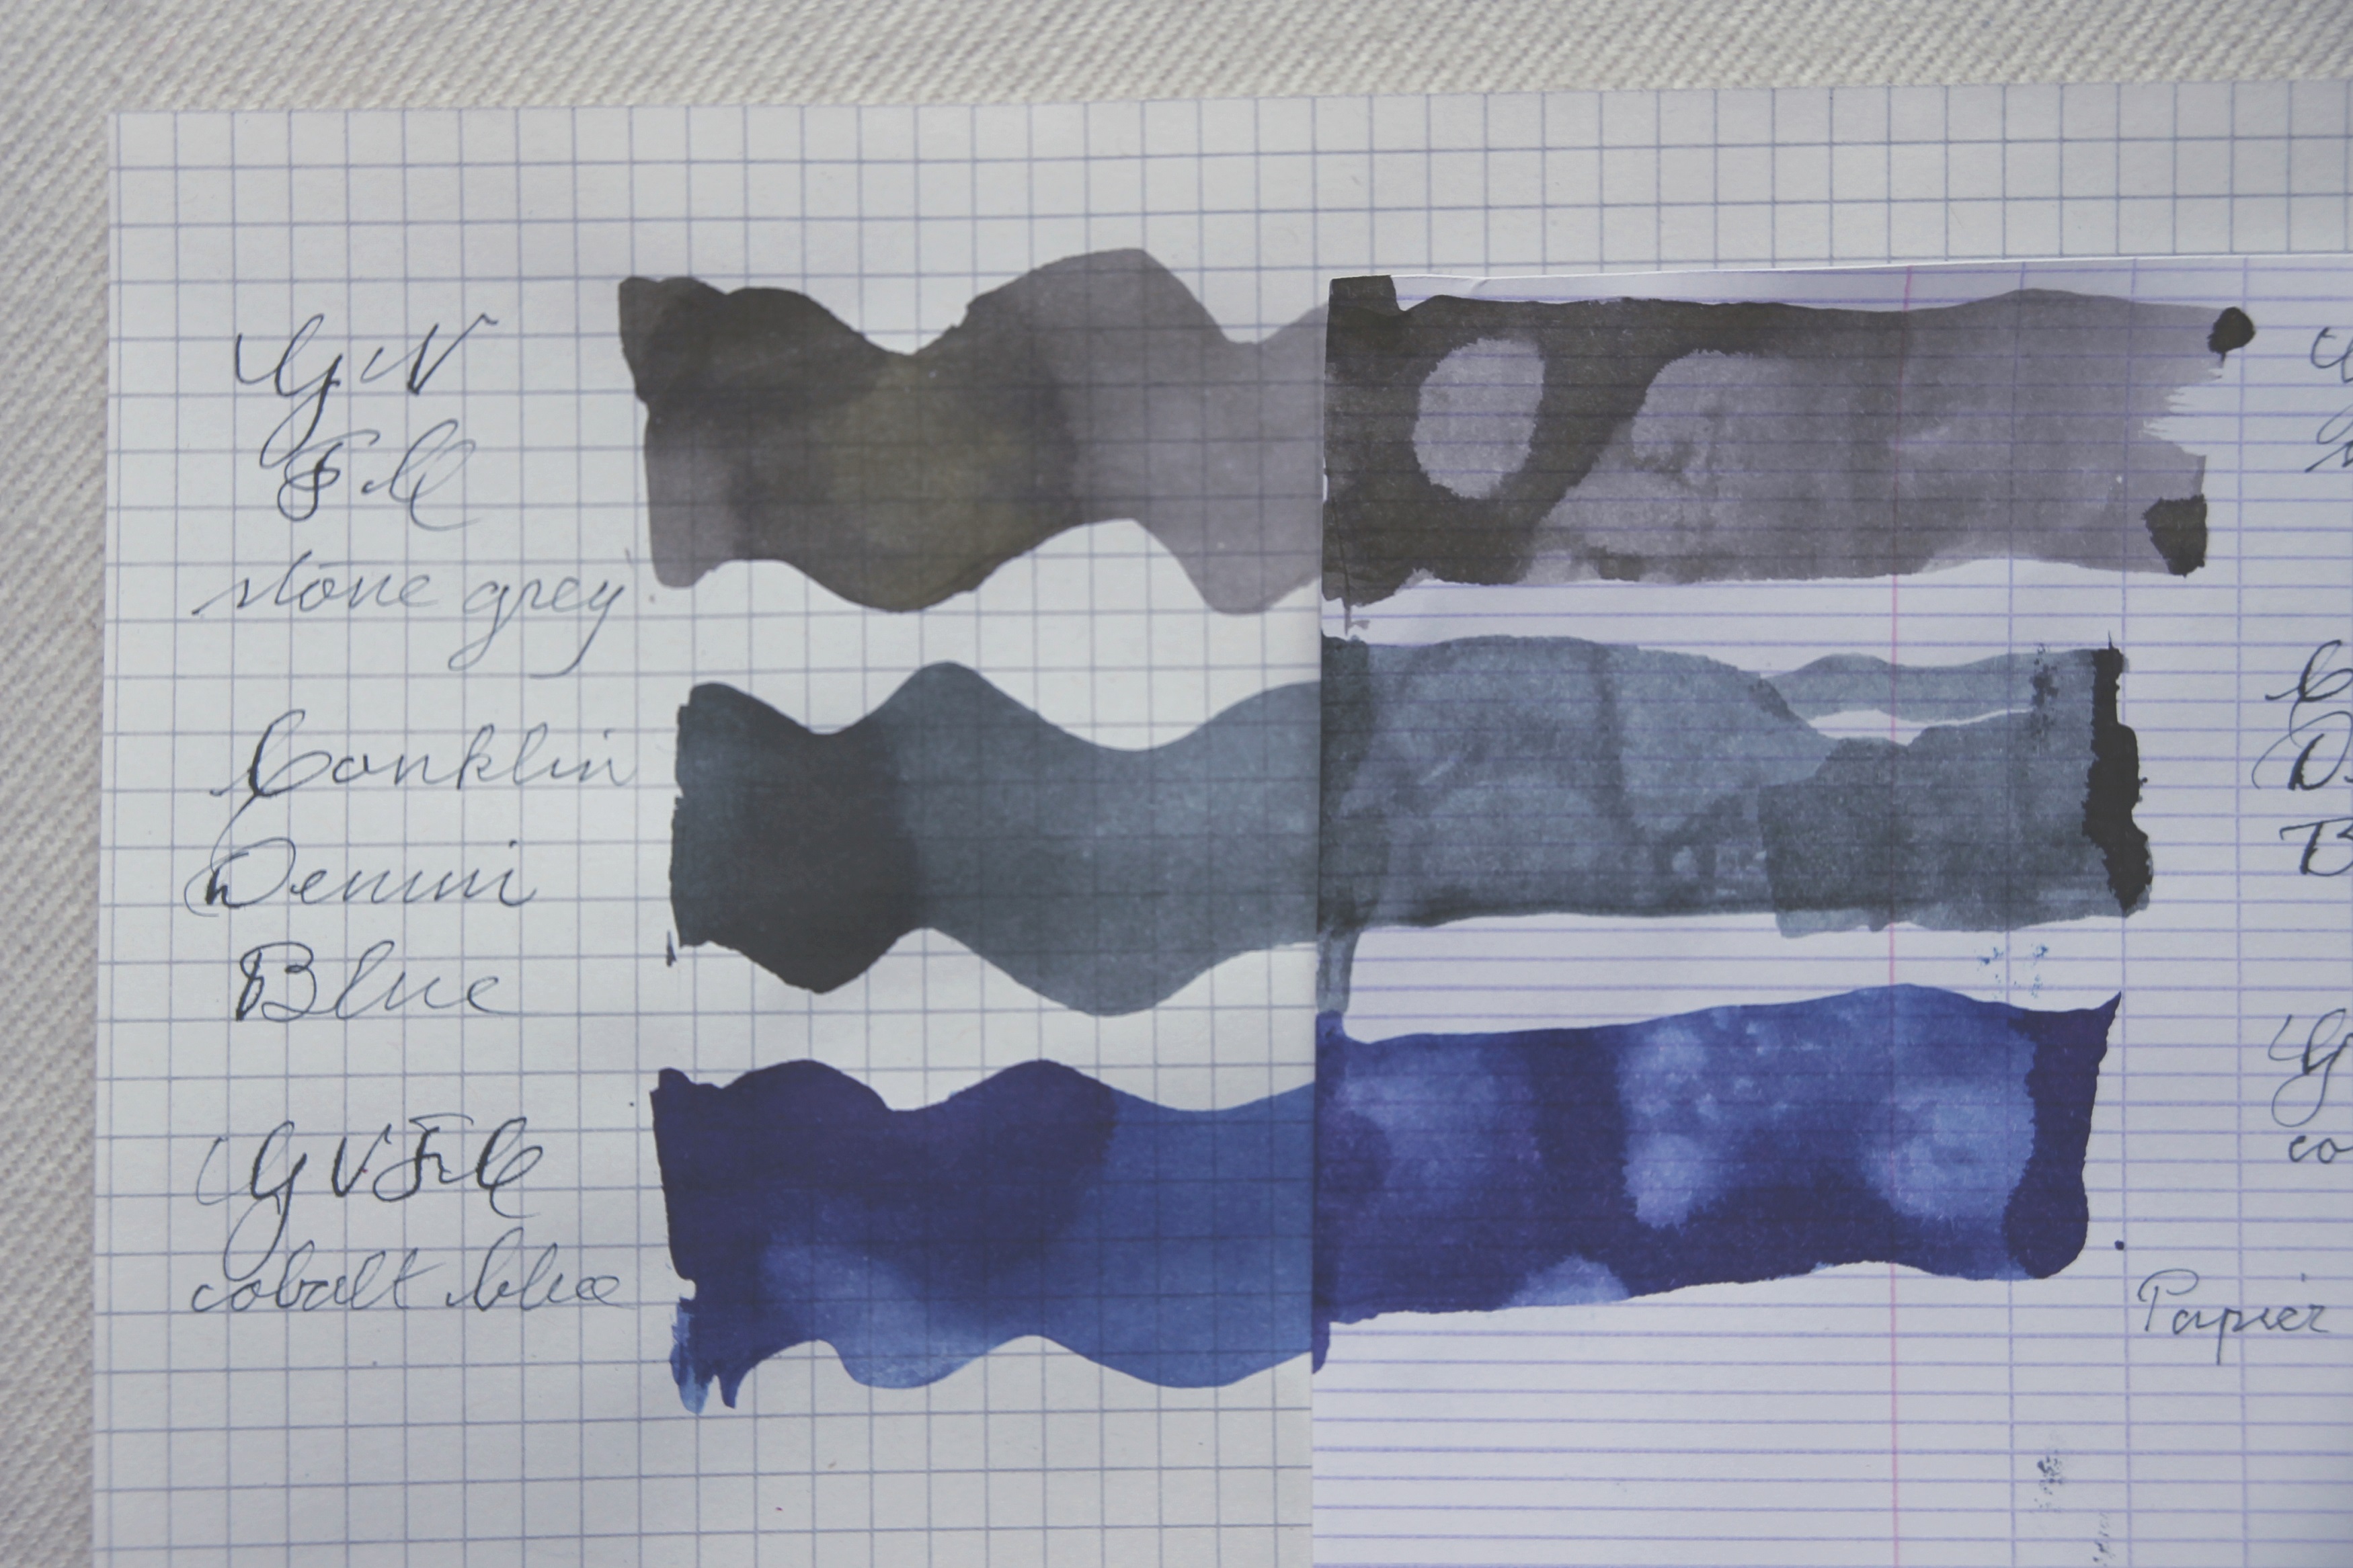 G. v
F. C
stone grey
Conklin
Denim
Blue
G v F. C
cobalt blue
co
Papier